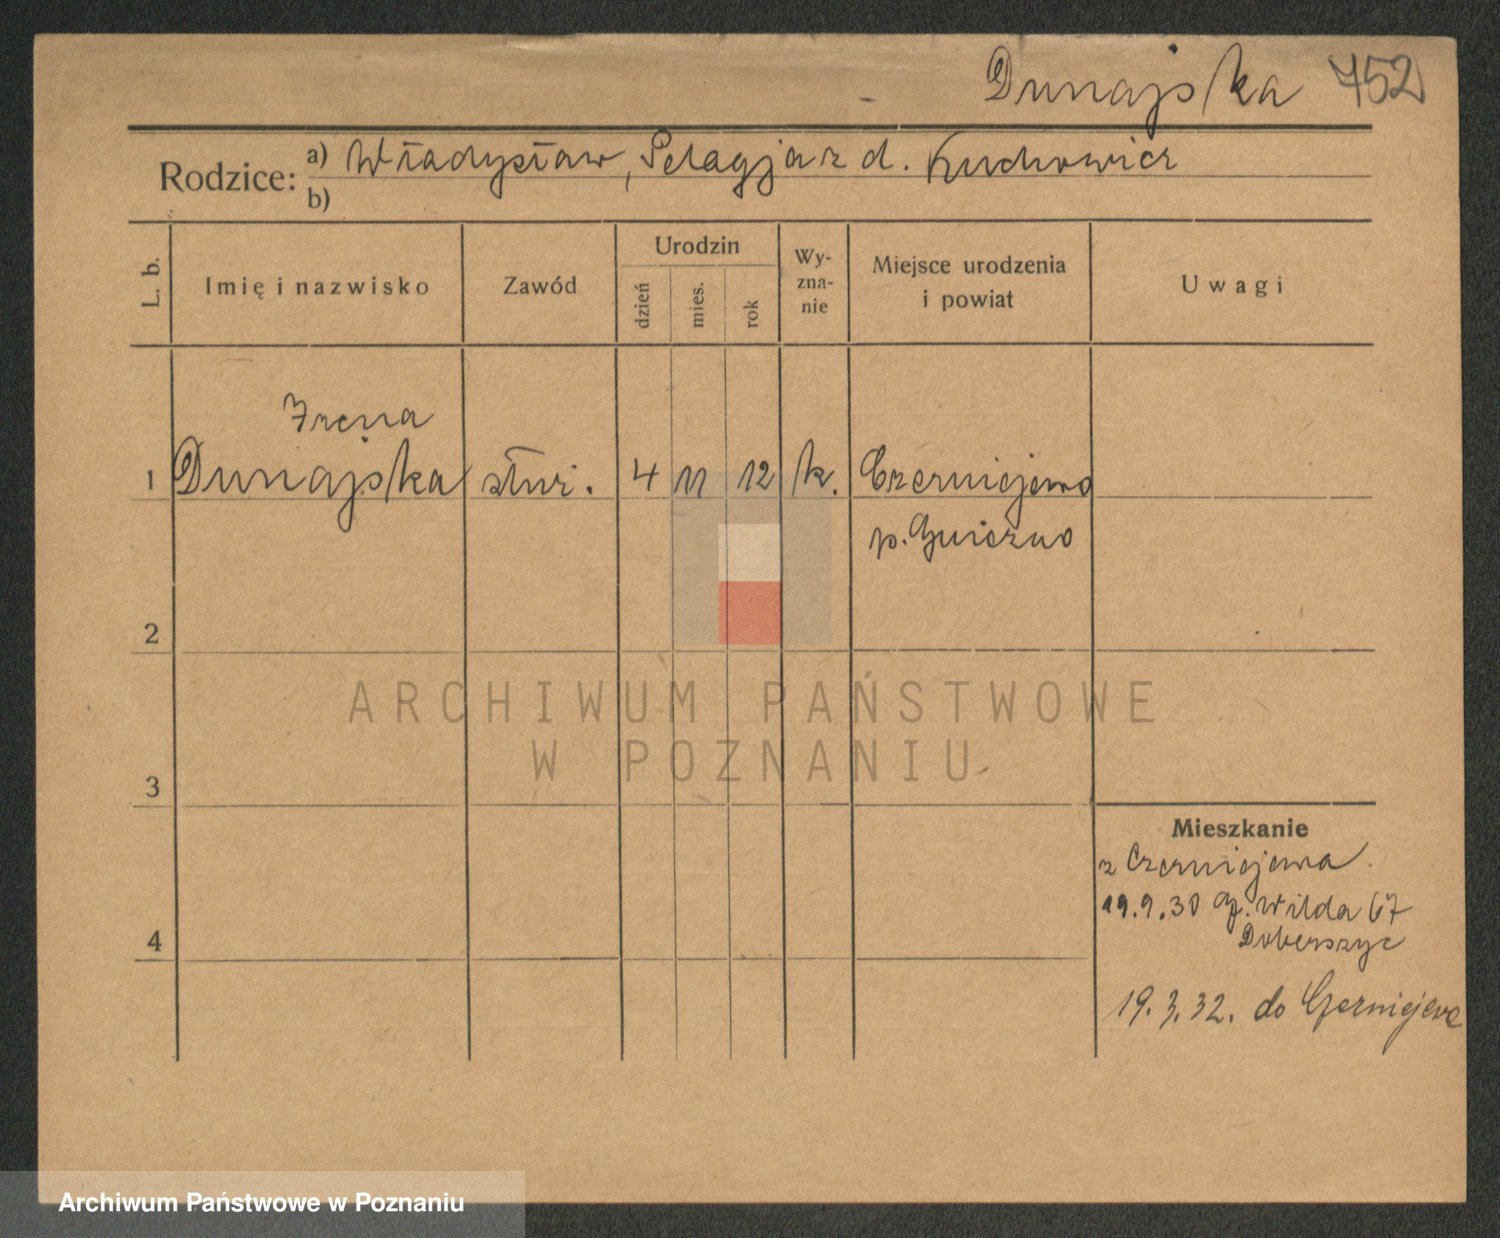 Dunajska 752
Rodzice: a) Władysław, Pelagja z d. Kuchowicz
b)
L. b.
Imię i nazwisko
Zawód
Urodzin
dzień
mies.
rok
Wy-
zna-
nie
Miejsce urodzenia
i powiat
Uwagi
Irena
1 Dunajska służ. 4 11 12 k. Czerniejewo
p. Gniezno
2
3
4
ARCHIWUM PAŃSTWOWE
W POZNANIU
Mieszkanie
z Czerniejewa
19.9.30 G. Wilda 67
Doberszyc
19.3.32. do Czerniejewa
Archiwum Państwowe w Poznaniu